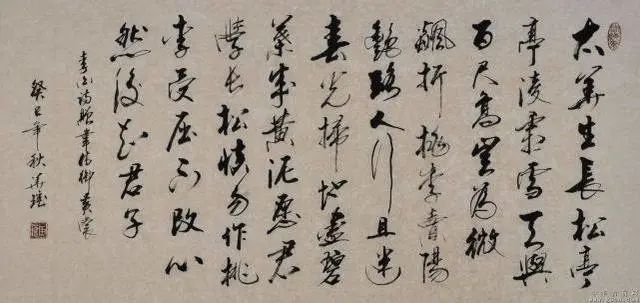 太華生長松亭
亭凌霜雪天與
百尺高豈為微
飆折桃李賣陽
艷路人行且迷
春光掃地盡碧
葉成黃泥愿君
學長松慎勿作桃
李受屈不改心
然後知君子
李白詩贈韋侍御黃裳
癸巳年秋